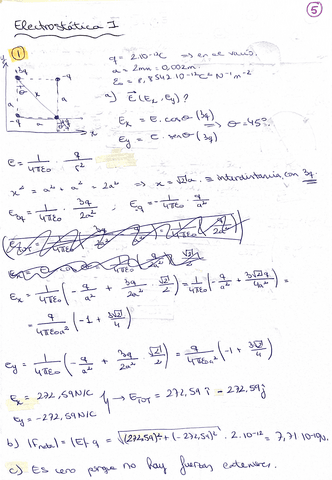 5
Electrostática I
1
q = 2.10⁻¹²C ⇒ en el vacío.
a = 2mm = 0,002m.
a) E⃗(Ex, Ey)?
Ex = E. cosθ (3q)
⇒ θ = 45°
Ey = E . senθ (3q)
3q
-q
a
x
a
-q
a
x
E = 1/4πε₀ · q/r²
x² = a² + a² = 2a² ⇒ x = √2 a ≡ interdistancia con 3q.
E3q = 1/4πε₀ · 3q/2a² ; E-q = -1/4πε₀ · q/a²
Ex = 1/4πε₀ (-q/a² + 3q/2a² · √2/2) = 1/4πε₀ (-q/a² + 3√2q/4a²) =
= q/4πε₀a² (-1 + 3√2/4)
Ey = 1/4πε₀ (-q/a² + 3q/2a² · √2/2) = q/4πε₀a² (-1 + 3√2/4)
Ex = 272,59N/C
→ ETOT = 272,59 i - 272,59 j
Ey = -272,59N/C
b) |Ftotal| = |E|·q = √(272,59)² + (-272,59)² · 2.10⁻¹² = 7,71·10⁻¹⁰N.
c) Es cero porque no hay fuerzas externas.